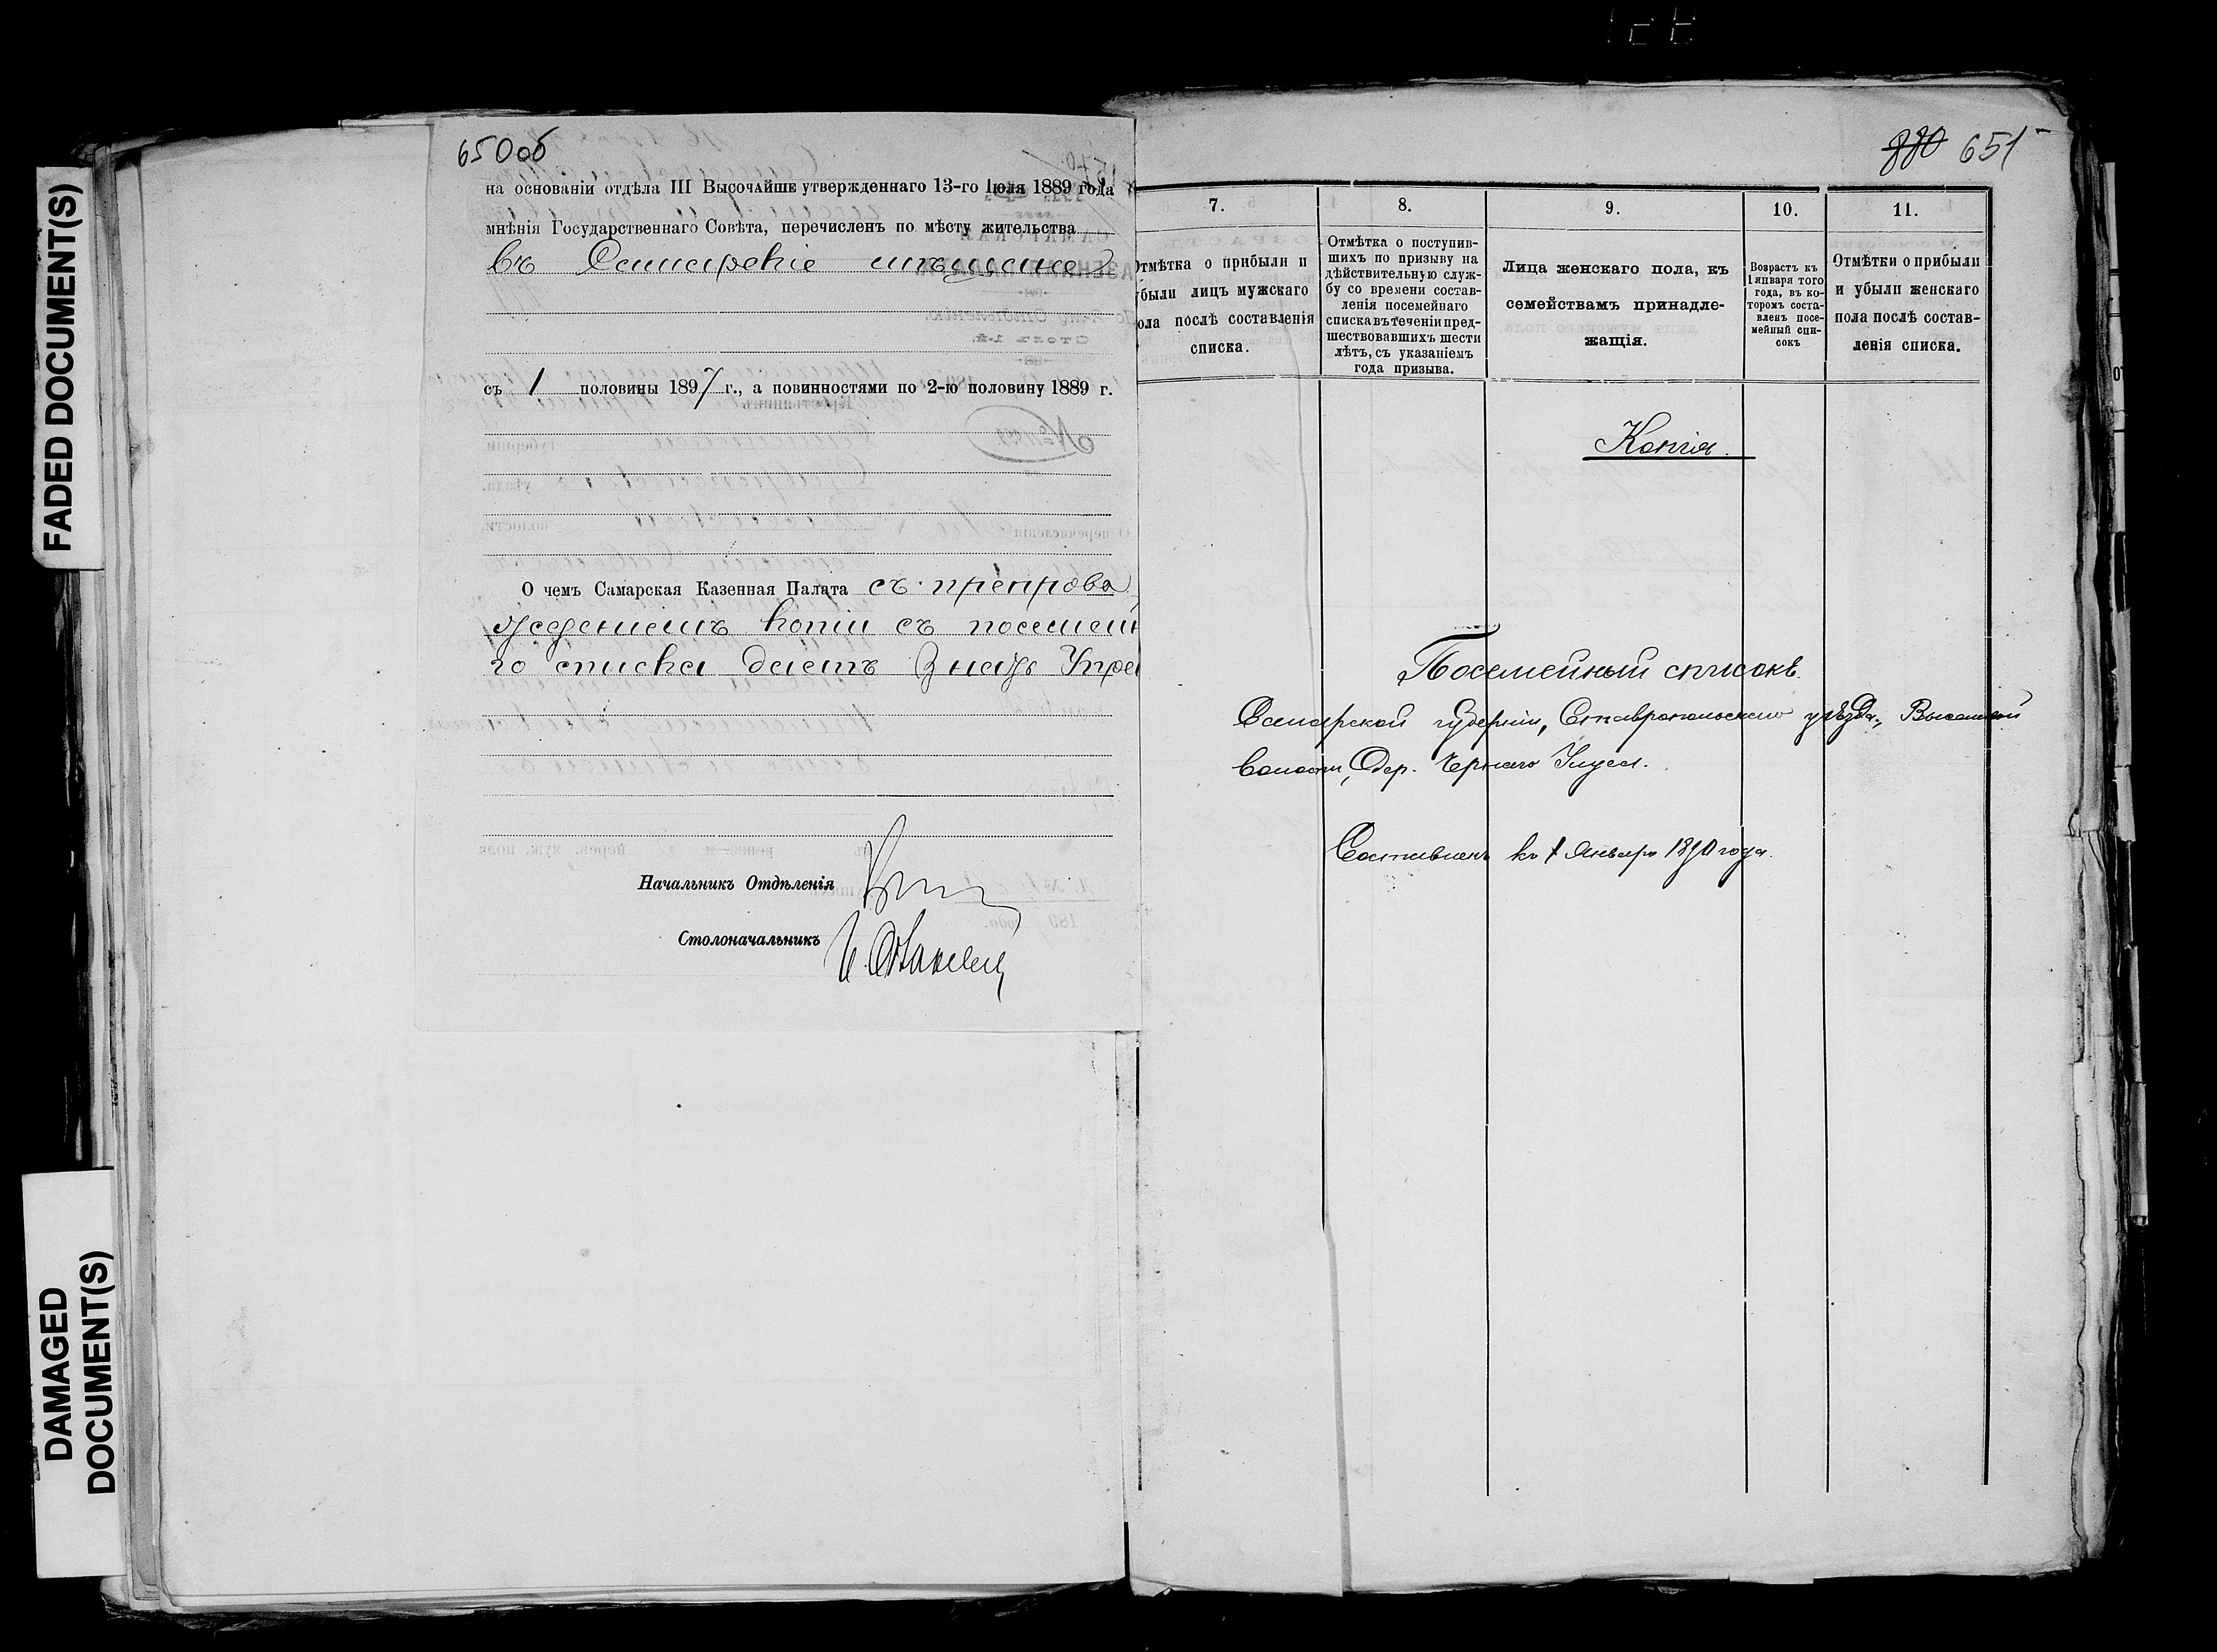 FADED DOCUMENT(S)
DAMAGED DOCUMENT(S)
650об
на основаніи отдѣла III Высочайше утвержденнаго 13-го Іюля 1889 года
мнѣнія Государственнаго Совѣта, перечисленъ по мѣсту жительства
въ Самарскіе мѣщане
съ 1 половины 1897 г., а повинностями по 2-ю половину 1889 г.
О чемъ Самарская Казенная Палата съ препрово
жденіемъ копіи съ посемейн
го списка даетъ знать Упра
Начальникъ Отдѣленія
Столоначальникъ
880 651
7.
Отмѣтка о прибыли и
убыли лицъ мужскаго
пола послѣ составленія
списка.
8.
Отмѣтка о поступив-
шихъ по призыву на
дѣйствительную служ-
бу со времени состав-
ленія посемейнаго
списка въ теченіи пред-
шествовавшихъ шести
лѣтъ, съ указаніемъ
года призыва.
9.
Лица женскаго пола, къ
семействамъ принадле-
жащія.
10.
Возрастъ къ
1 января того
года, въ ко-
торомъ соста-
вленъ посе-
мейный спи-
сокъ
11.
Отмѣтки о прибыли
и убыли женскаго
пола послѣ состав-
ленія списка.
Копія.
Посемейный списокъ
Самарской губерніи, Ставропольскаго уѣзда,
волости, дер. Чернаго Улуса.
Составленъ къ 1 Января 1890 года.